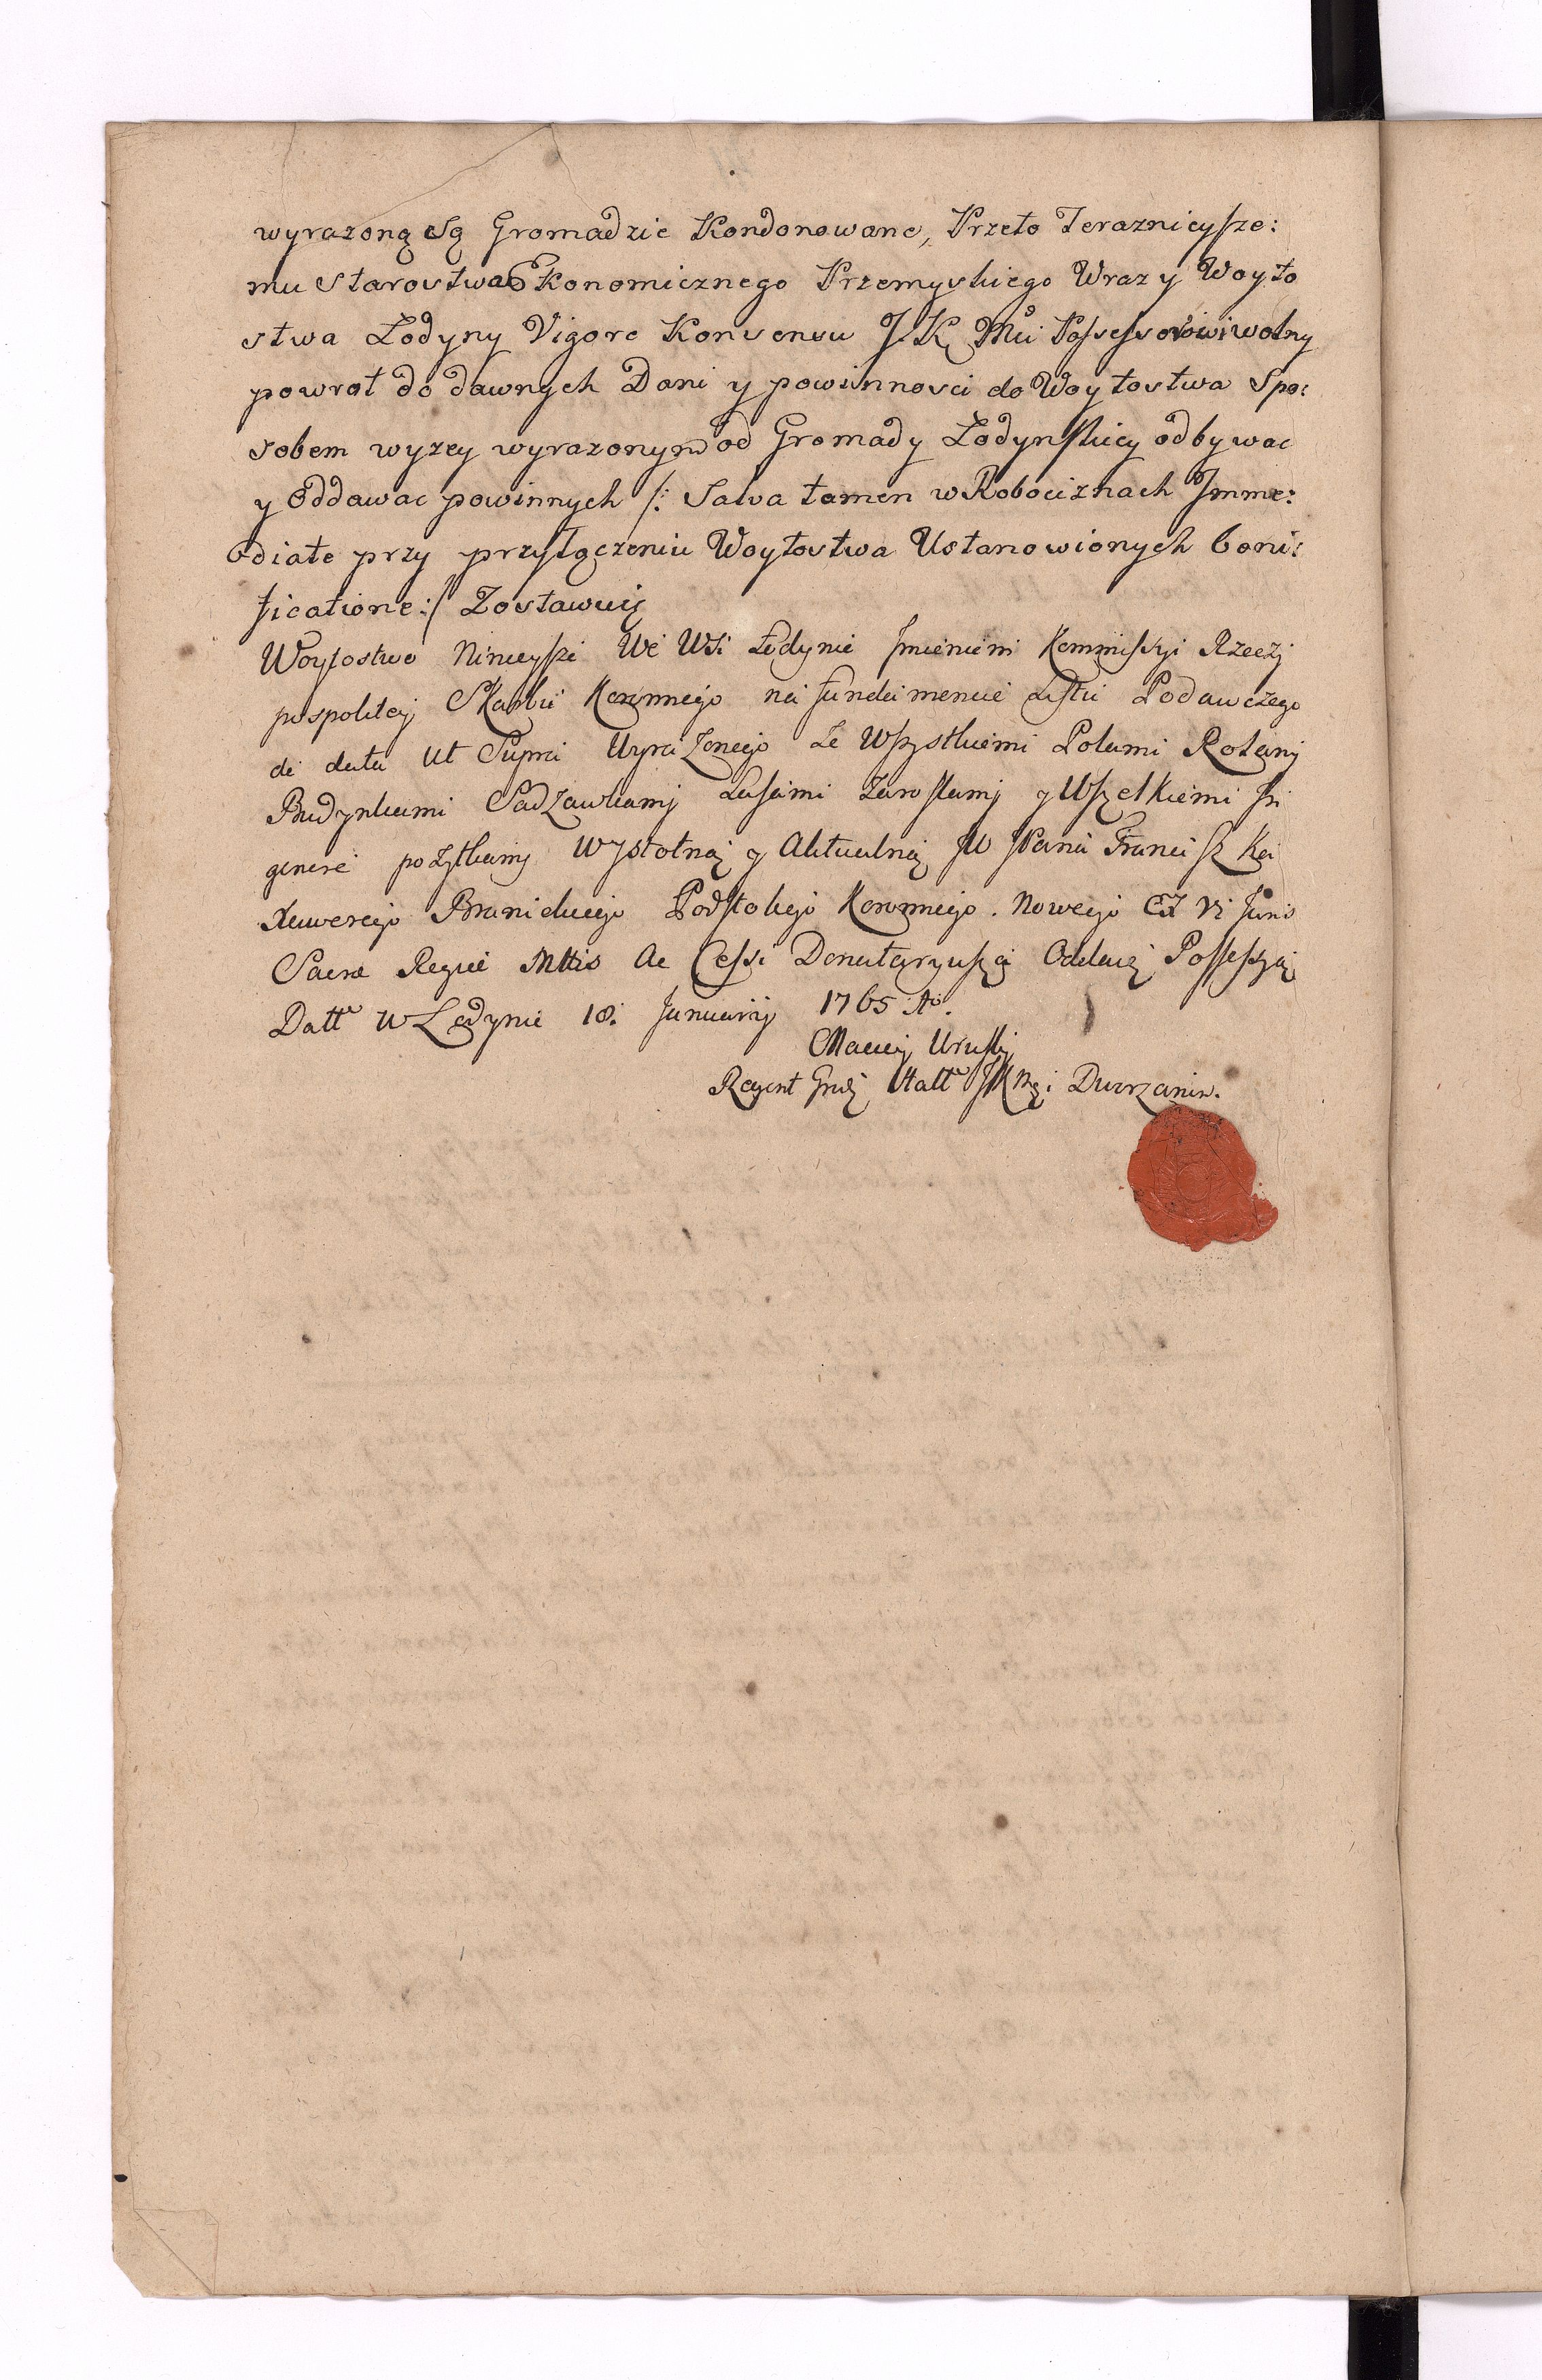 wyrazoną Są Gromadzie Kondonowane, Przeto Teraznieysze:
mu Starostwa Ekonomicznego Przemyskiego Wraz y Woyto
stwa Łodyny Vigore Konsensu J. K. Mci Possessorowi wolny
powrot do dawnych Dani y powinnosci do Woytostwa Spo:
sobem wyzey wyrazonym od Gromady Łodynskiey odbywac
y Oddawac powinnych /: Salva tamen w Robociznach Imme:
diate przy przyłączeniu Woytostwa Ustanowionych boni:
ficatione :/ Zostawuię
Woytostwo Ninieysze We Wsi Łodynie Imieniem Kommissyi Rzeczy
pospolitey Skarbu Koronnego na fundamencie Listu Podawczego
de data ut Supra Wyrażonego Ze Wszystkiemi Polami Rolami
Budynkami Sadzawkami Lasami Zaroslami y Wszelkiemi In
genere pożytkami W Istotną y Aktualną JW JPana Franciszka
Xawerego Branickiego Podstolego Koronnego. Nowego Ex Vi
Sacræ Regiæ Mttis Donataryusza Oddaię Possessyą
Datt w Łodynie 18. Januarij 1765 Ao.
Maciey Uruski
Regent JK Mci Dworzanin.